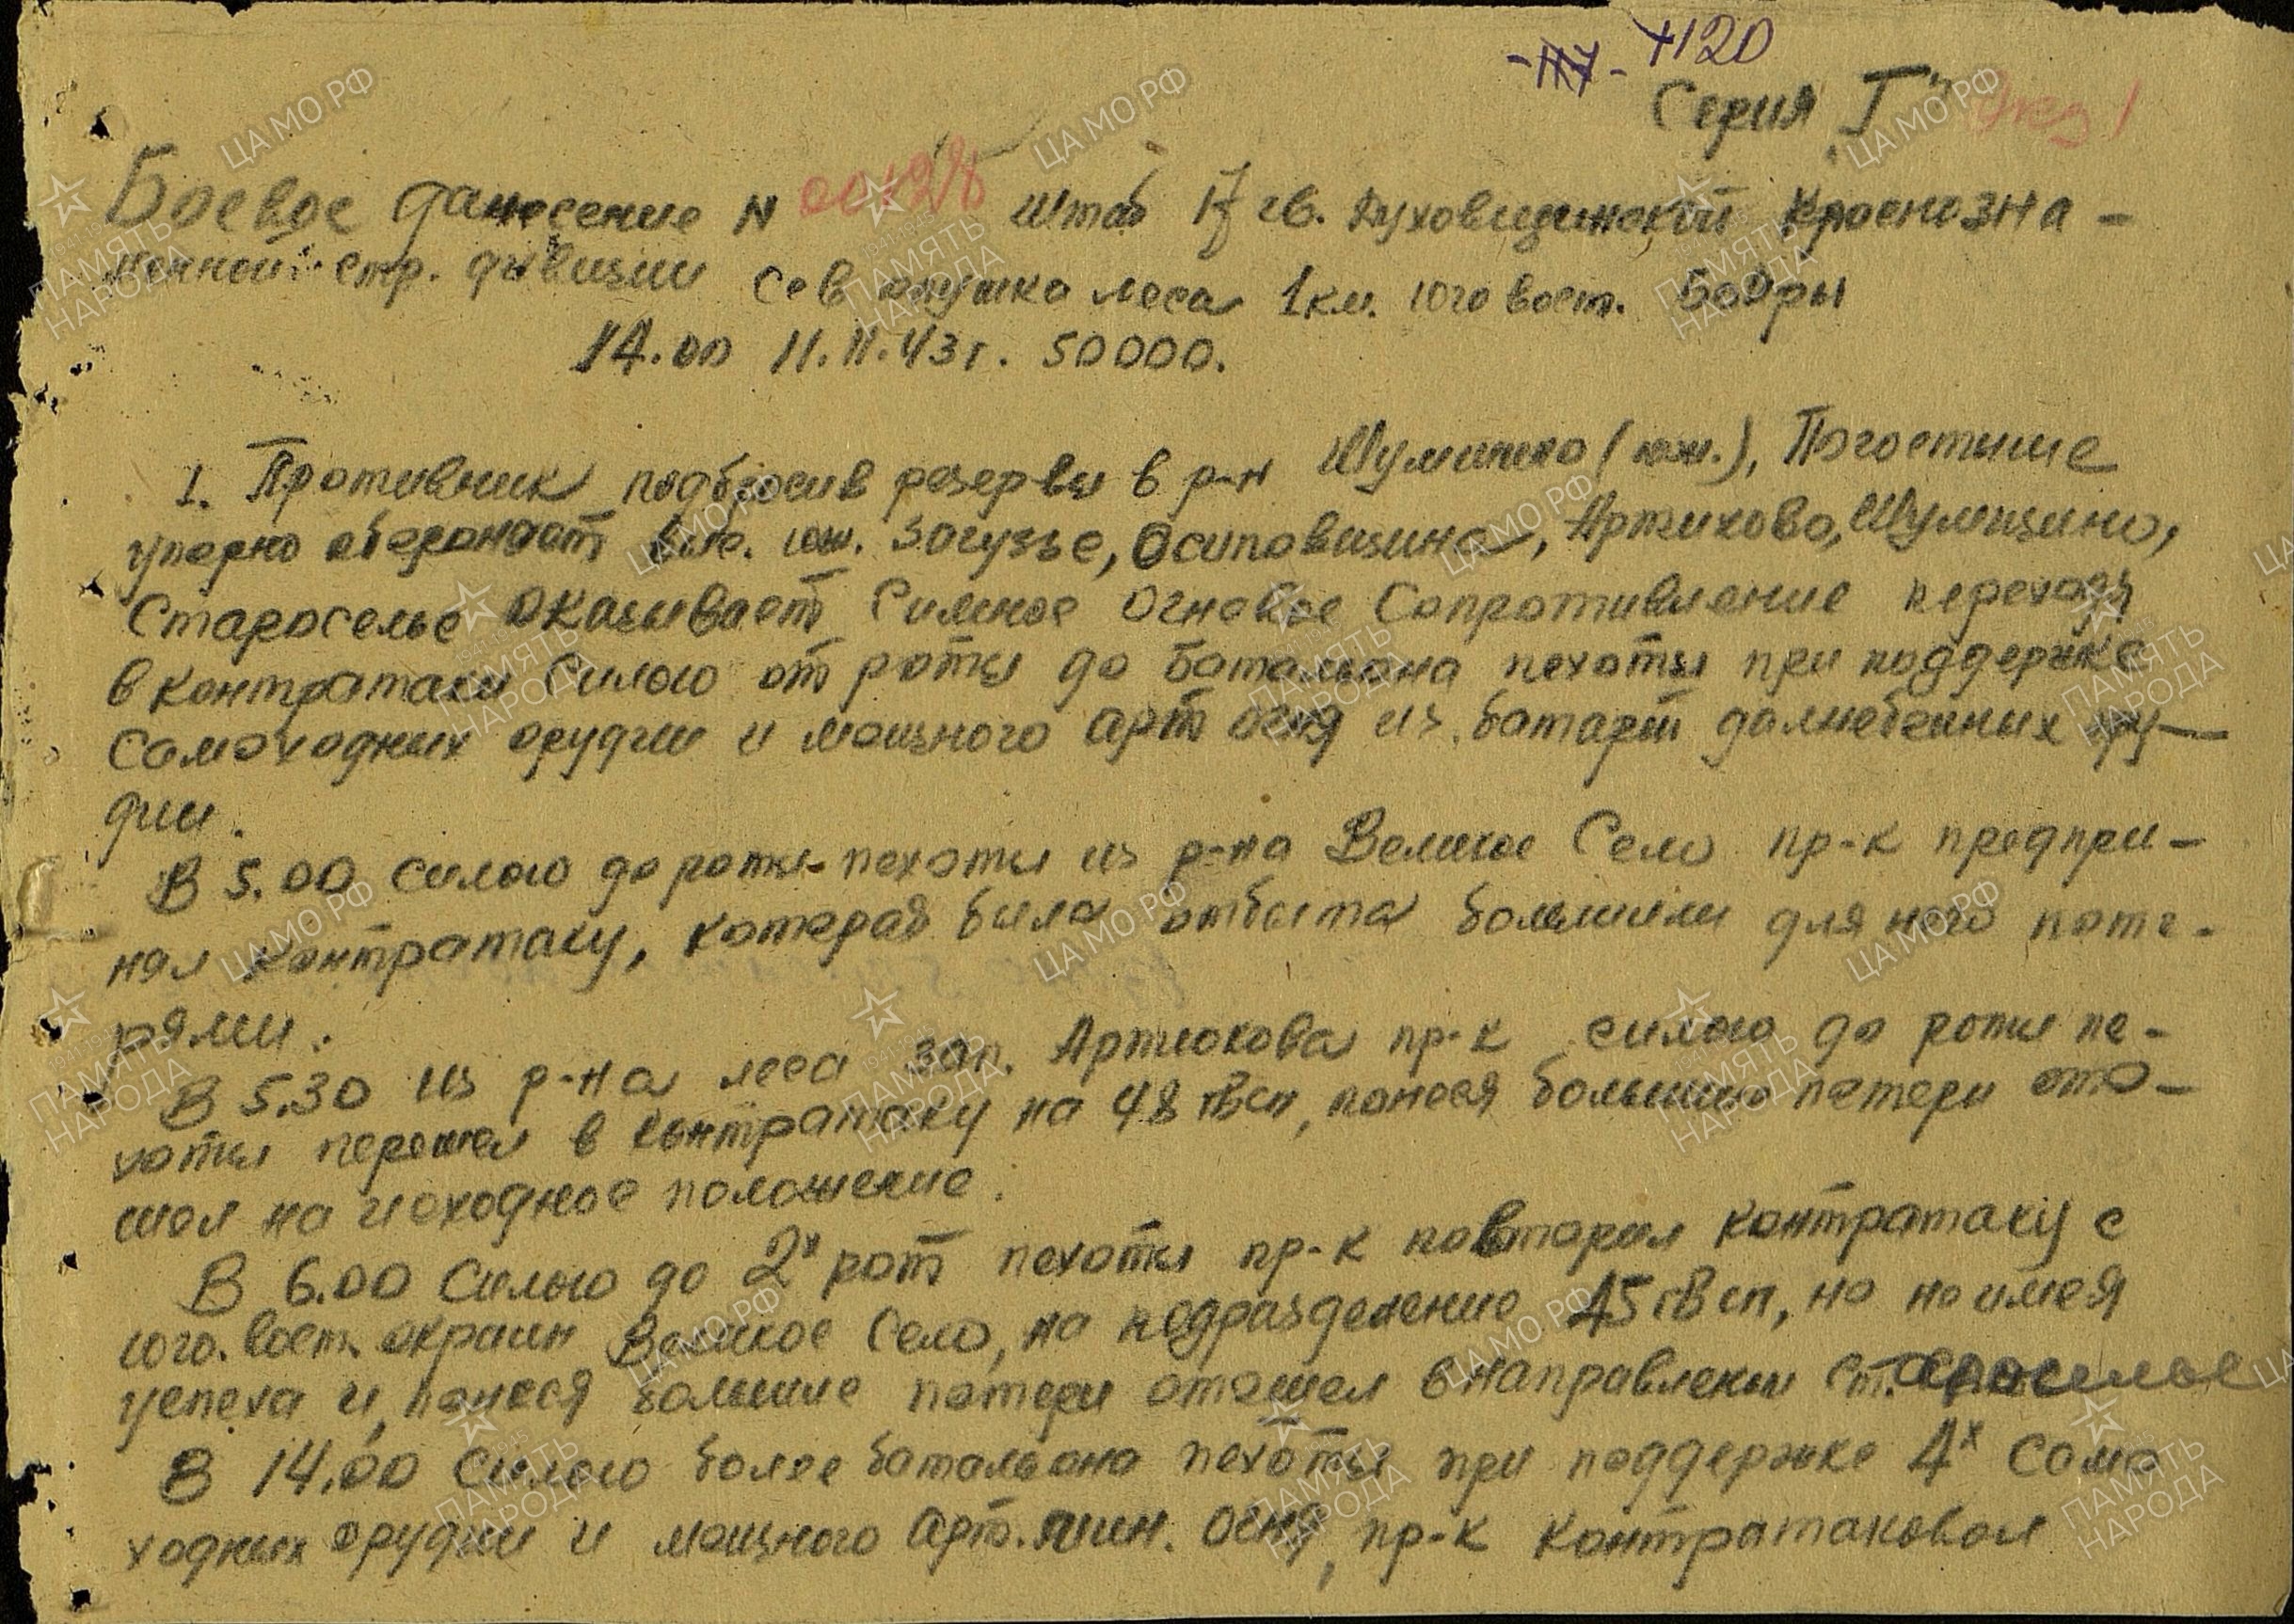 -117- +120
Серия "Г" Экз 1
Боевое данесение N 00428 Штаб 17 гв. Духовщинской Краснозна-
менной стр. дивизии Сев опушка леса 1 км. юго вост. Бояры
14.00 11.11.43 г. 50000.
1. Противник подбросив резервы в р-н Шумигино (юж.), Погостище
упорно оборонает выс. юж. Загузье, Осиповщина, Артихово, Шумищино,
Староселье оказывает Силное Огневое Сопротивление переходя
в контратаки Силою от роты до батальона пехоты при поддержке
Самоходных орудии и мощного Арт огня из батарей дальнебойных ору-
дии.
В 5.00 силою до роты пехоты из р-на Великое Село пр-к предпри-
нял контратаку, которая была отбита большими для него поте-
рями.
В 5.30 из р-на леса зап. Артюхова пр-к силою до роты пе-
хоты перешел в контратаку на 48 гвсп, понеся большие потери ото-
шел на исходное положение.
В 6.00 Силою до 2х рот пехоты пр-к повторил контратаку с
юго. вост. окраин Великое Село, на подразделение 45 гвсп, но не имея
успеха и, понеся большие потери отошел в направлении Староселье
В 14.00 Силою более батальона пехоты при поддержке 4х Само
ходных орудии и мощного Арт. мин. Огня, пр-к контратаковал
ПАМЯТЬ НАРОДА
ЦАМО РФ